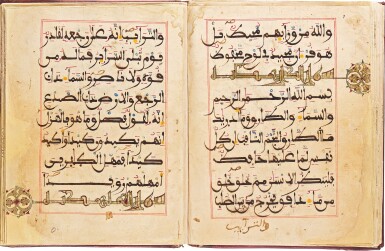 والله من ورائهم محيط بل
هو قرءان مجيد في لوح محفوظ
سورة الطارق
بسم الله الرحمن الرحيم
والسماء والطارق وما أدريك
ما الطارق النجم الثاقب إن كل
نفس لما عليها حافظ
فلينظر الإنسن مم خلق خلق
من ماء دافق يخرج من بين الصلب
والترائب
والترائب إنه على رجعه لقادر
يوم تبلى السرائر فما له من
قوة ولا ناصر والسماء ذات
الرجع والأرض ذات الصدع
إنه لقول فصل وما هو بالهزل
إنهم يكيدون كيدا وأكيد
كيدا فمهل الكفرين
أمهلهم رويدا
سورة